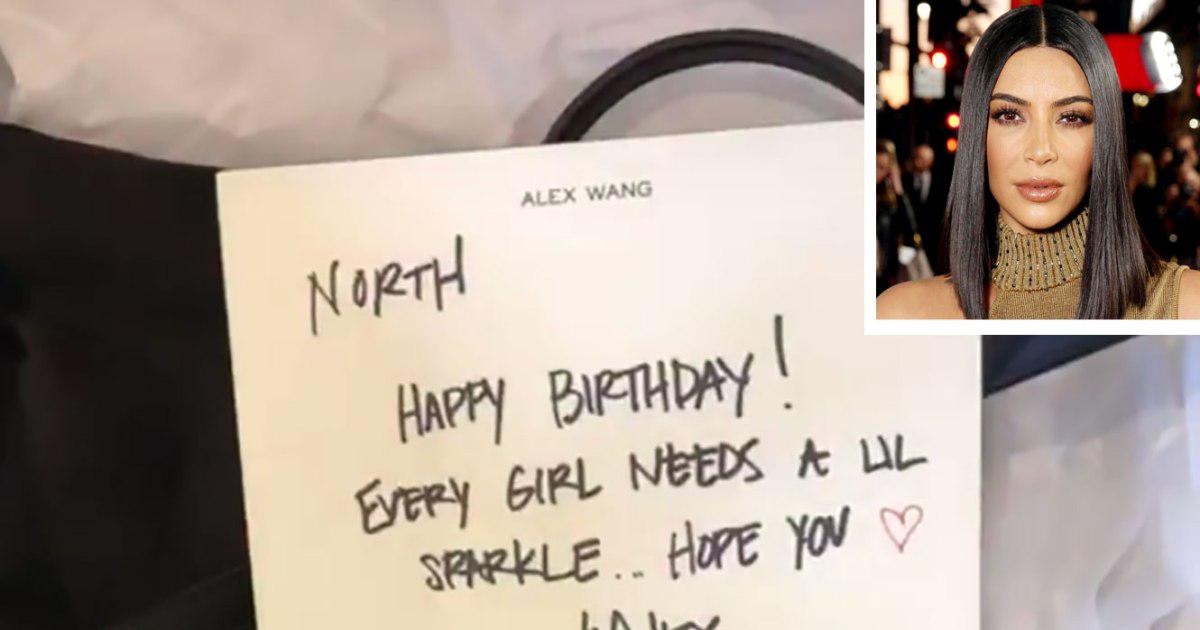 ALEX WANG
NORTH
HAPPY BIRTHDAY!
EVERY GIRL NEEDS A LIL
SPARKLE... HOPE YOU ♡